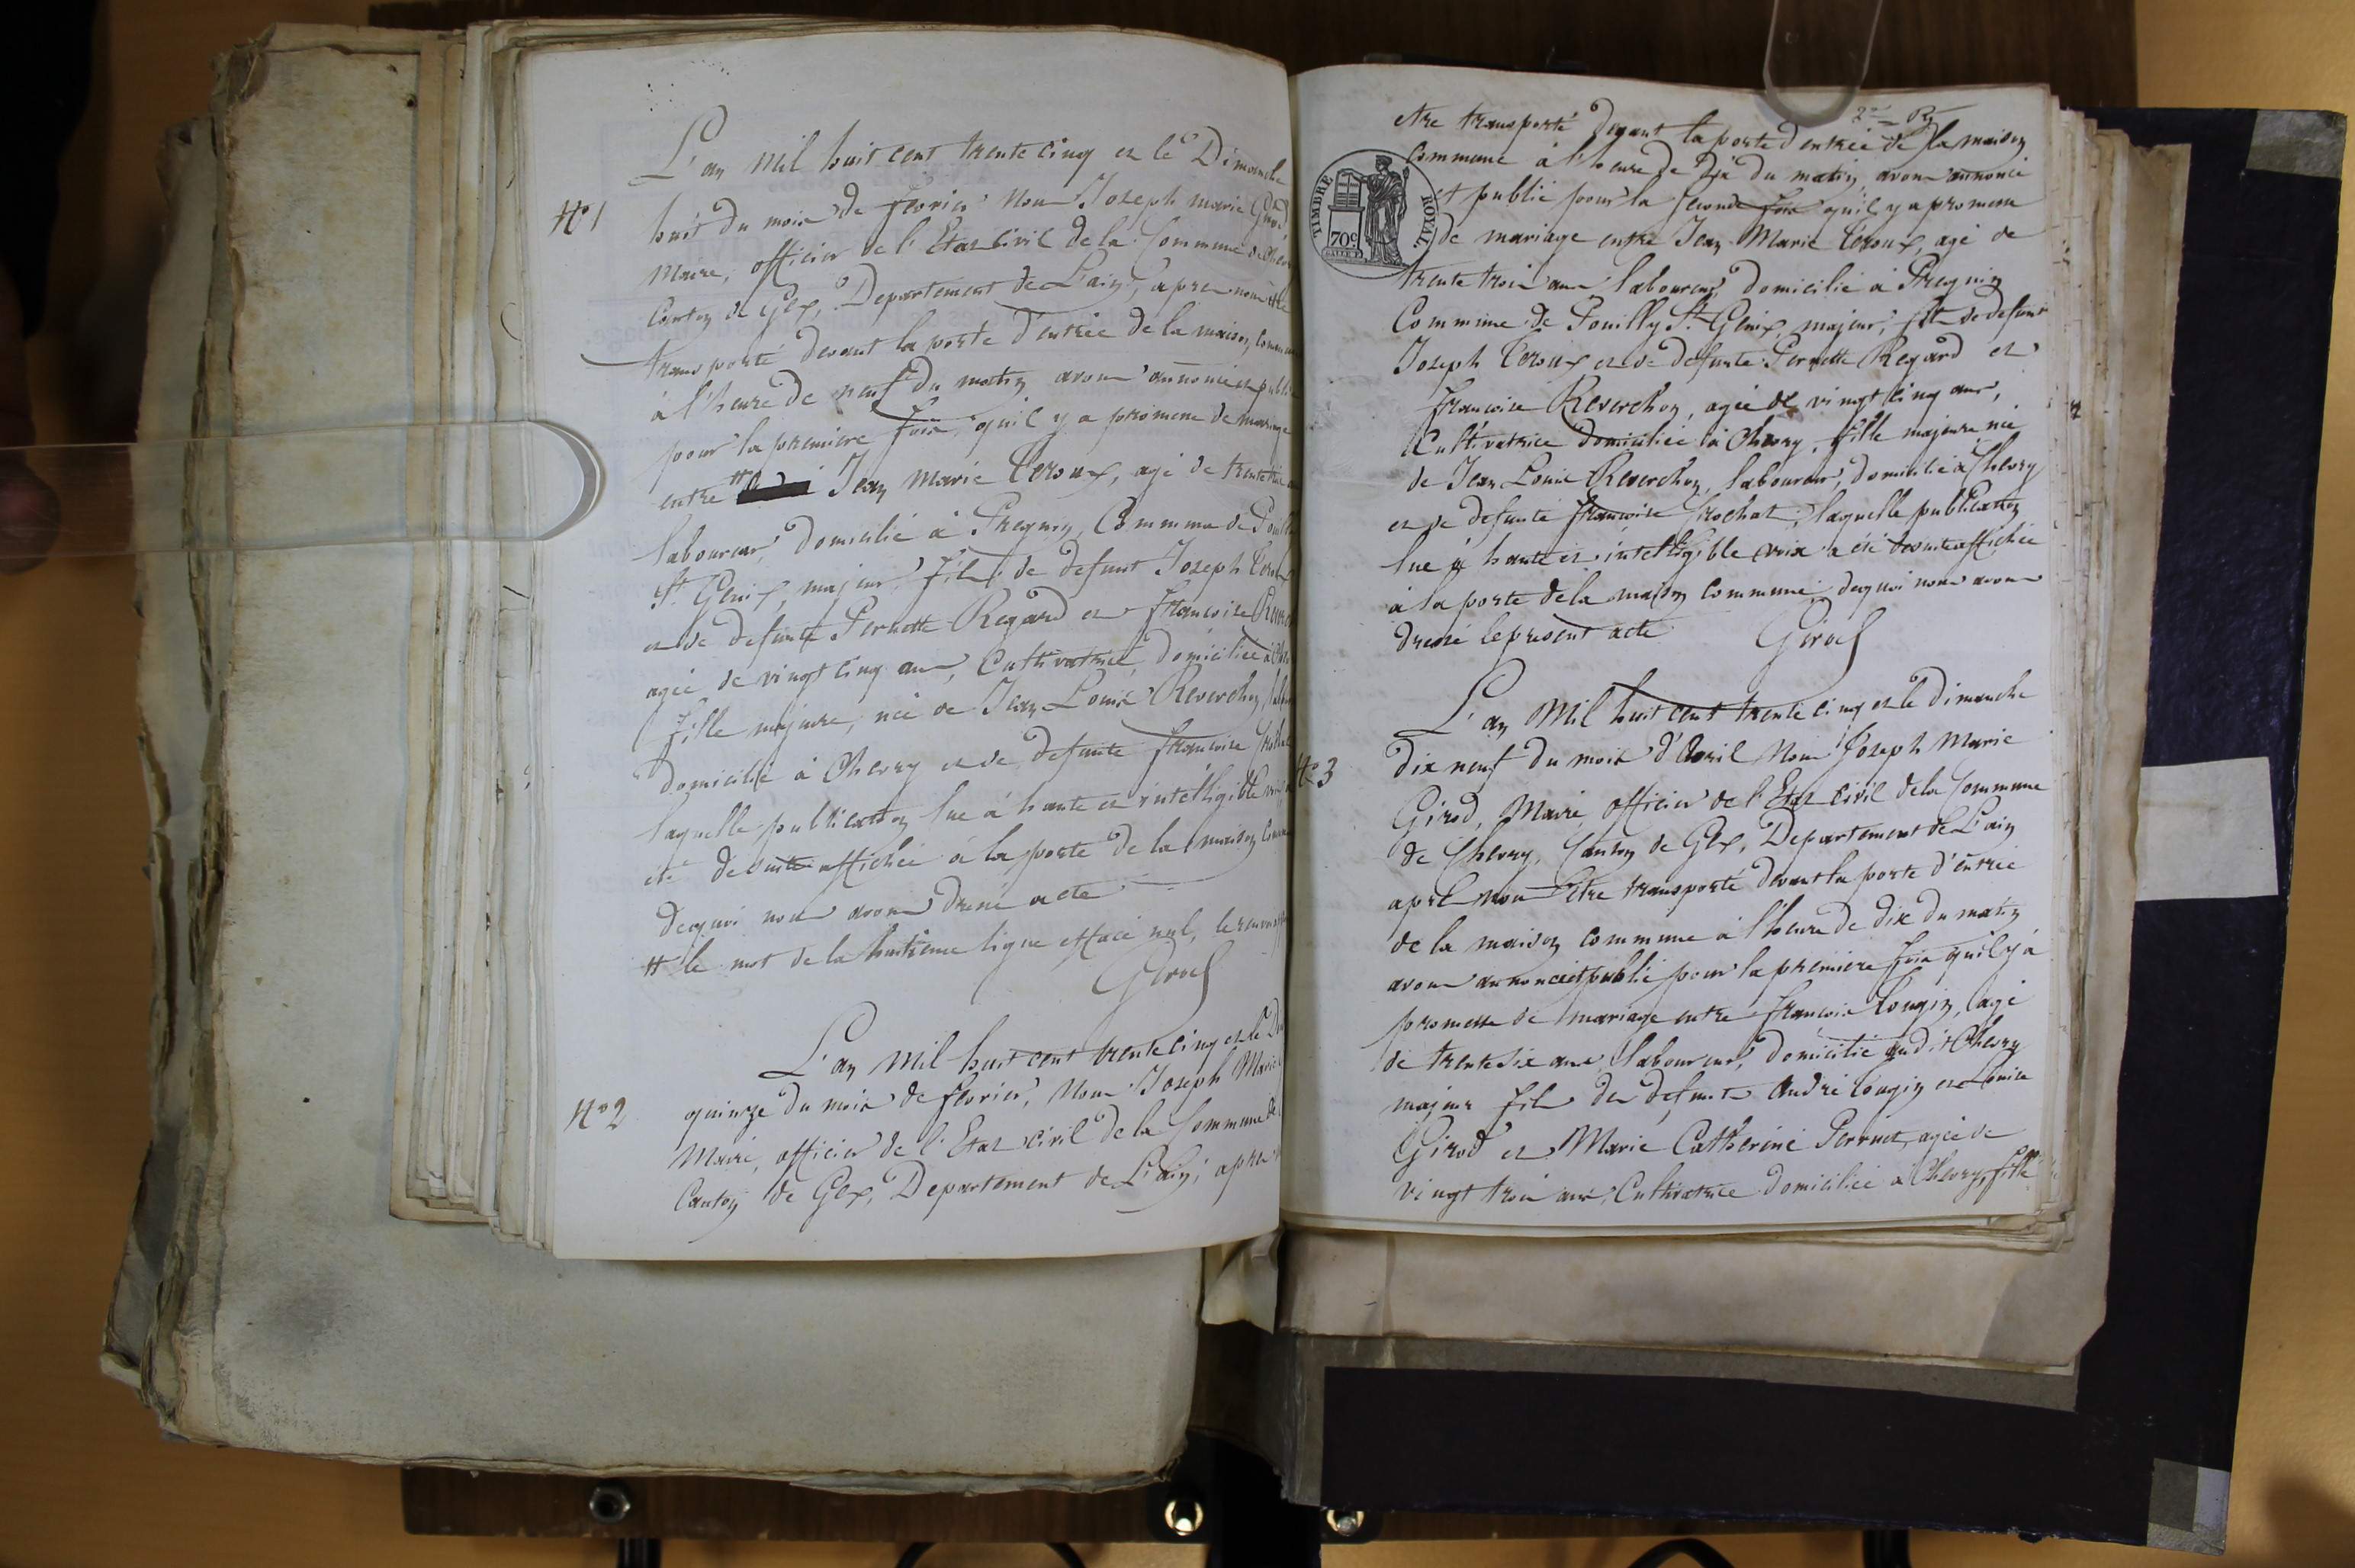 L'an mil huit cent trente cinq et le Dimanche
N° 1
huit du mois de fevrier Nous Joseph marie Girod
Maire, officier de l'Etat Civil de la Commune de
Canton de Gex, Departement de L'ain, apres nous etre
transporté devant la porte d'entrée de la maison
à l'heure de neuf du matin avons annoncé et
pour la premiere fois, qu'il y a promesse de mariage
entre # Jean Marie Leroux, agé de trente
laboureur, domicilié à Pregnin, Commune de
St. Genix, majeur, fils de defunt Joseph
et de defunte Pernette Regard et francoise
agée de vingt cinq ans, Cultivatrice, domiciliée à
fille majeure, née de Jean Louis Reverchon
domicilié à Chevry et de defunte francoise
laquelle publication lue à haute et intelligible
été de suite affichée à la porte de la maison
dequoi nous avons dressé acte
# le mot de la huitieme ligne effacé nul,
Girod
L'an mil huit cent trente cinq et le
N° 2
quinze du mois de fevrier, Nous Joseph Marie
Maire, officier de l'Etat civil de la Commune de
Canton de Gex, Departement de L'ain, apres
etre transporté devant la porte d'entrée de la maison
commune à l'heure de dix du matin, avons annoncé
et publié pour la seconde fois qu'il y a promesse
TIMBRE ROYAL.
70c
de mariage entre Jean Marie Leroux, agé de
trente trois ans laboureur, domicilié à Pregnin
Commune de Pouilly St. Genix, majeur, fils de defunt
Joseph Leroux et de defunte Pernette Regard et
francoise Reverchon, agée de vingt cinq ans,
Cultivatrice domiciliée à Chevry, fille majeure née
de Jean Louis Reverchon, laboureur, domicilié à Chevry
et de defunte francoise Crochat, laquelle publication
lue à haute et intelligible voix a été de suite affichée
à la porte de la maison commune, dequoi nous avons
dressé le present acte
Girod
L'an mil huit cent trente cinq et le dimanche
dix neuf du mois d'Avril Nous Joseph Marie
N° 3
Girod, Maire, officier de l'Etat civil de la Commune
de Chevry, Canton de Gex, Departement de L'ain
apres nous etre transporté devant la porte d'entrée
de la maison commune à l'heure de dix du matin
avons annoncé et publié pour la premiere fois qu'il y à
promesse de mariage entre francois Lougin, agé
de trente six ans laboureur, domicilié audit Chevry
majeur fils des defunts André Lougin et Louise
Girod et Marie Catherine Perruet, agée de
vingt trois ans, Cultivatrice domiciliée à Chevry, fille